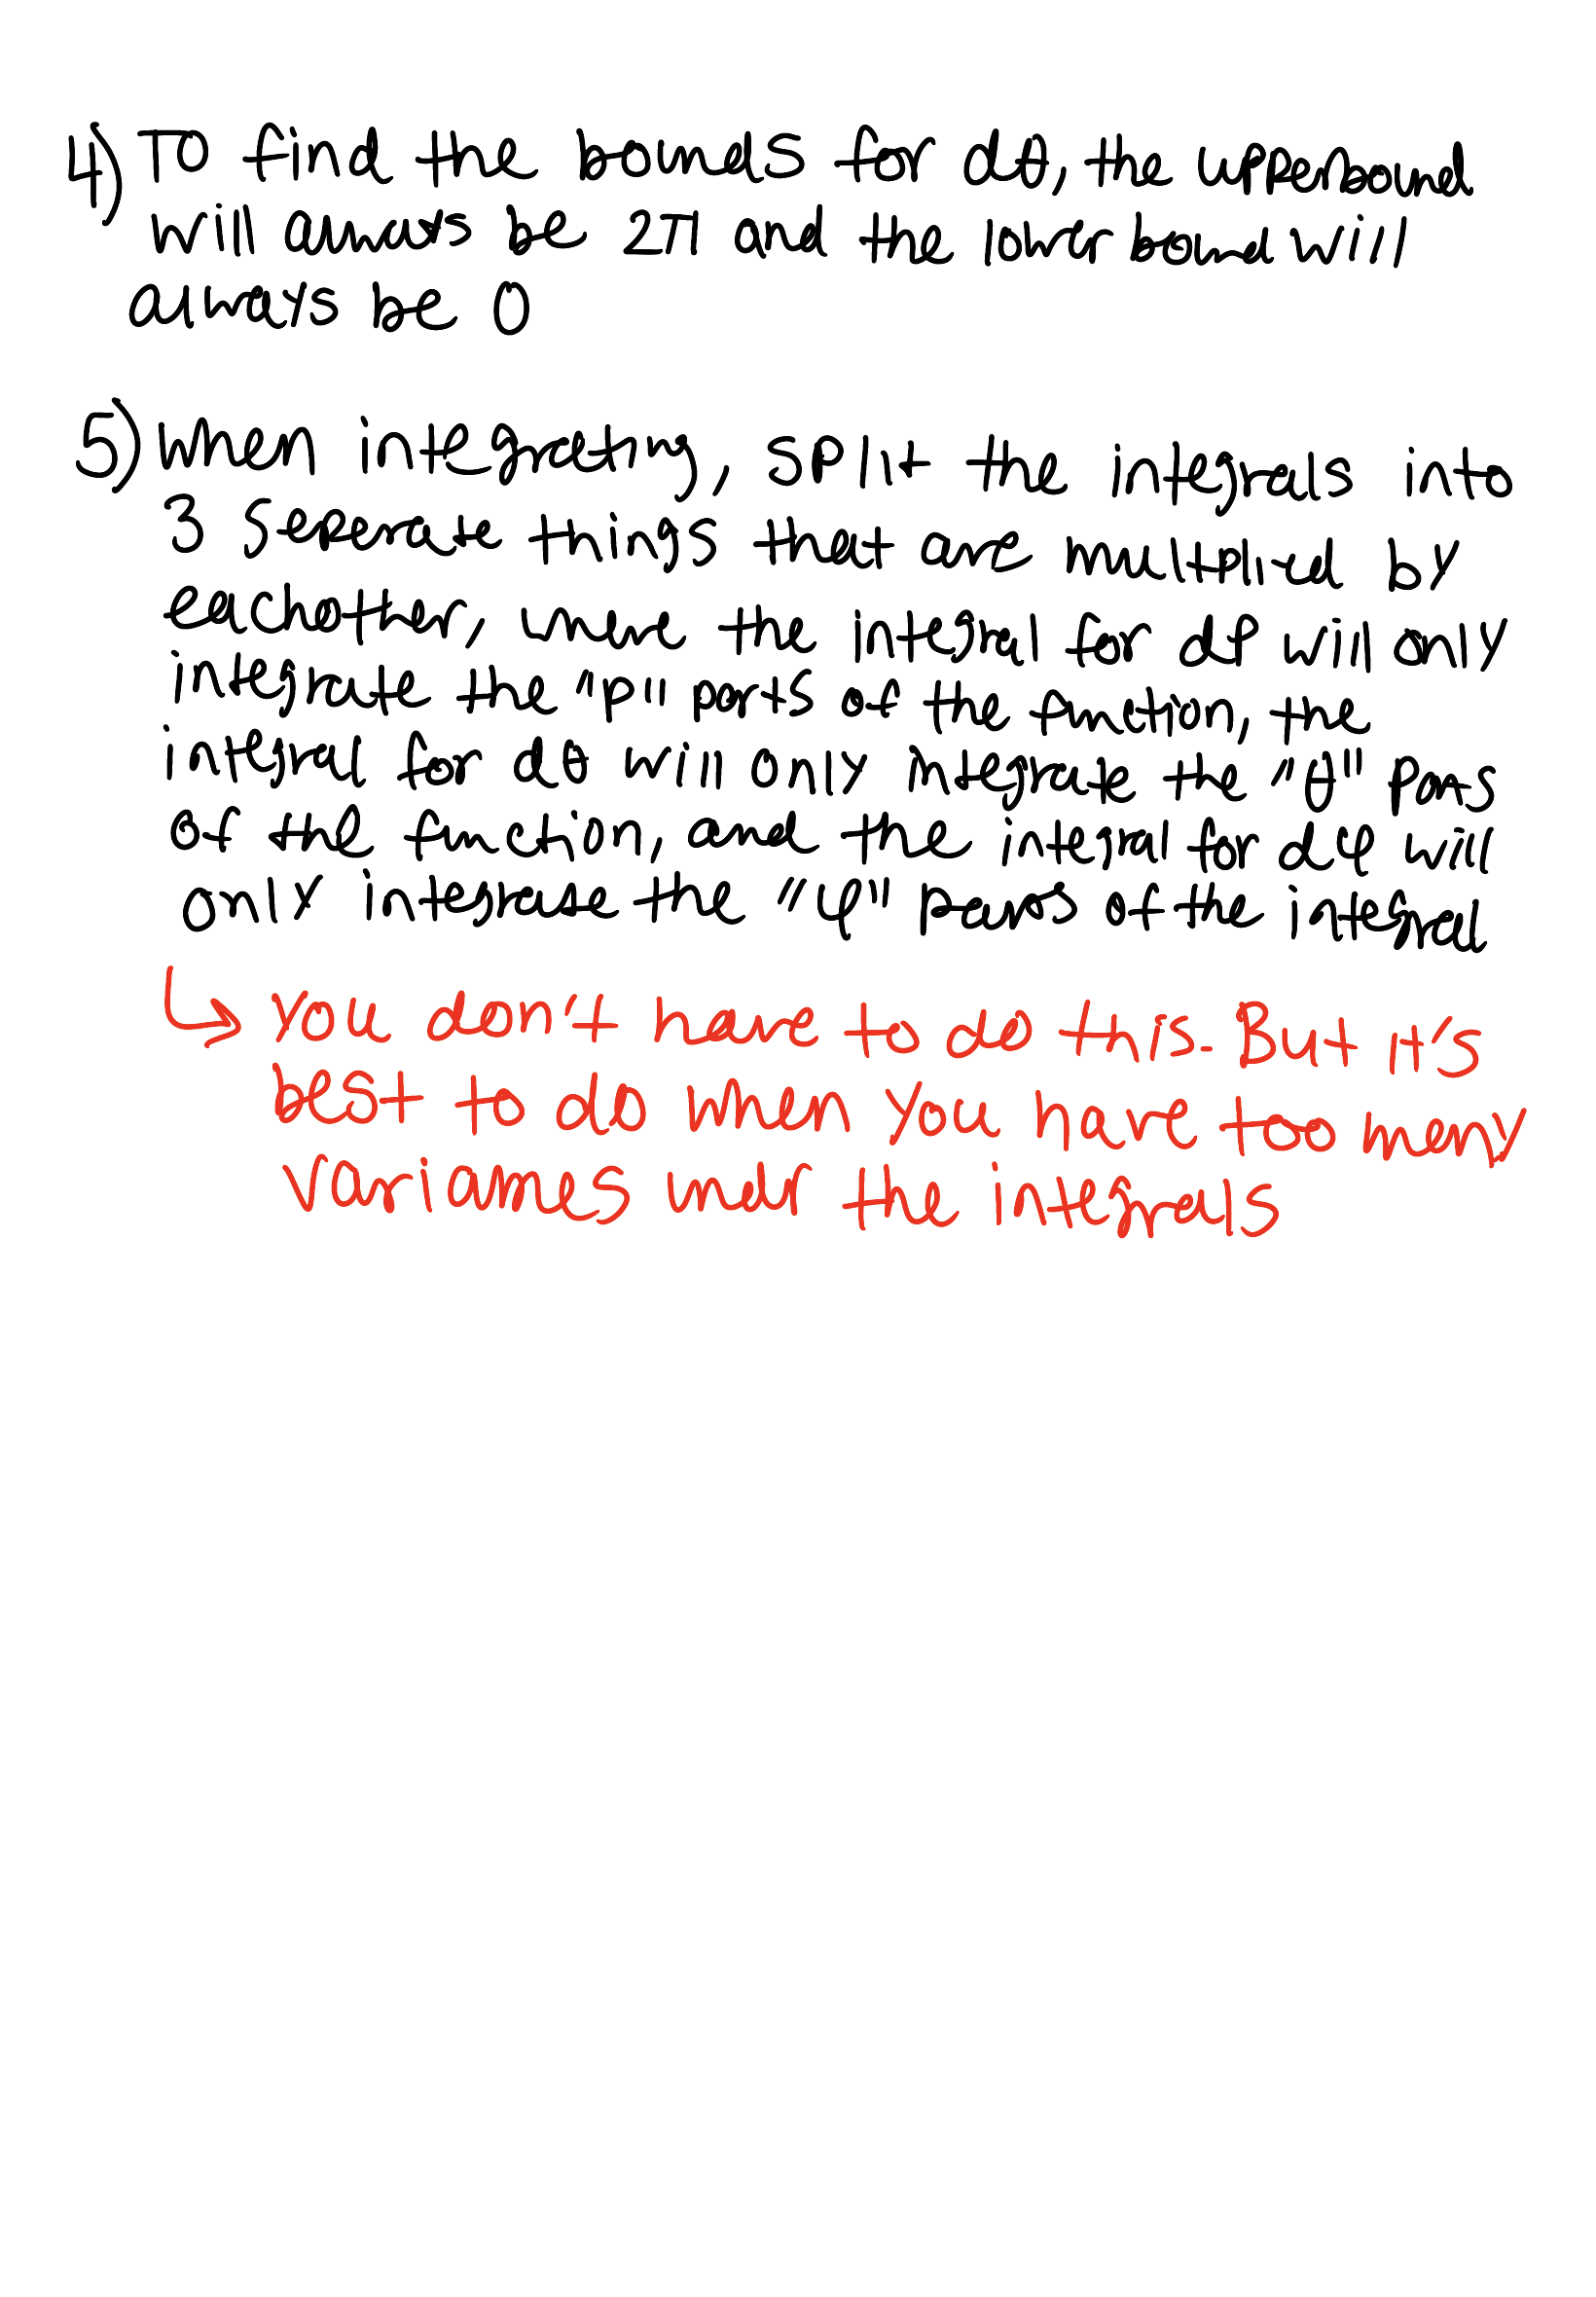 4) To find the bounds for dθ, the upperbound
will always be 2π and the lower bound will
always be 0
5) When integrating, split the integrals into
3 seperate things that are multplied by
eachother, where the integral for dρ will only
integrate the "ρ" parts of the function, the
integral for dθ will only integrate the "θ" parts
of the function, and the integral for dφ will
only integrate the "φ" parts of the integral
↳ You don't have to do this. But it's
best to do when you have too many
variables under the integrals